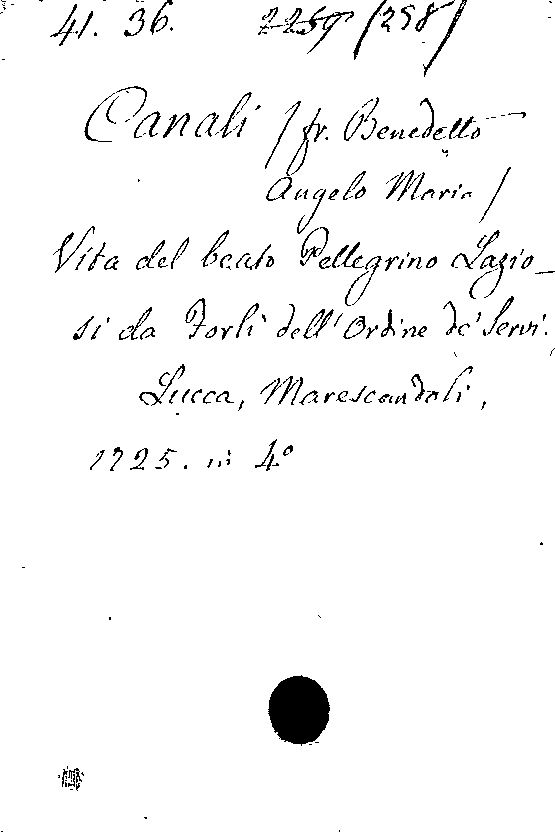 41. 36. 2259 /258/
Canali /fr. Benedetto
Angelo Maria/
Vita del beato Pellegrino Lazio_
si da Forlì dell'Ordine de' Servi.
Lucca, Marescandoli,
1725. in 4°